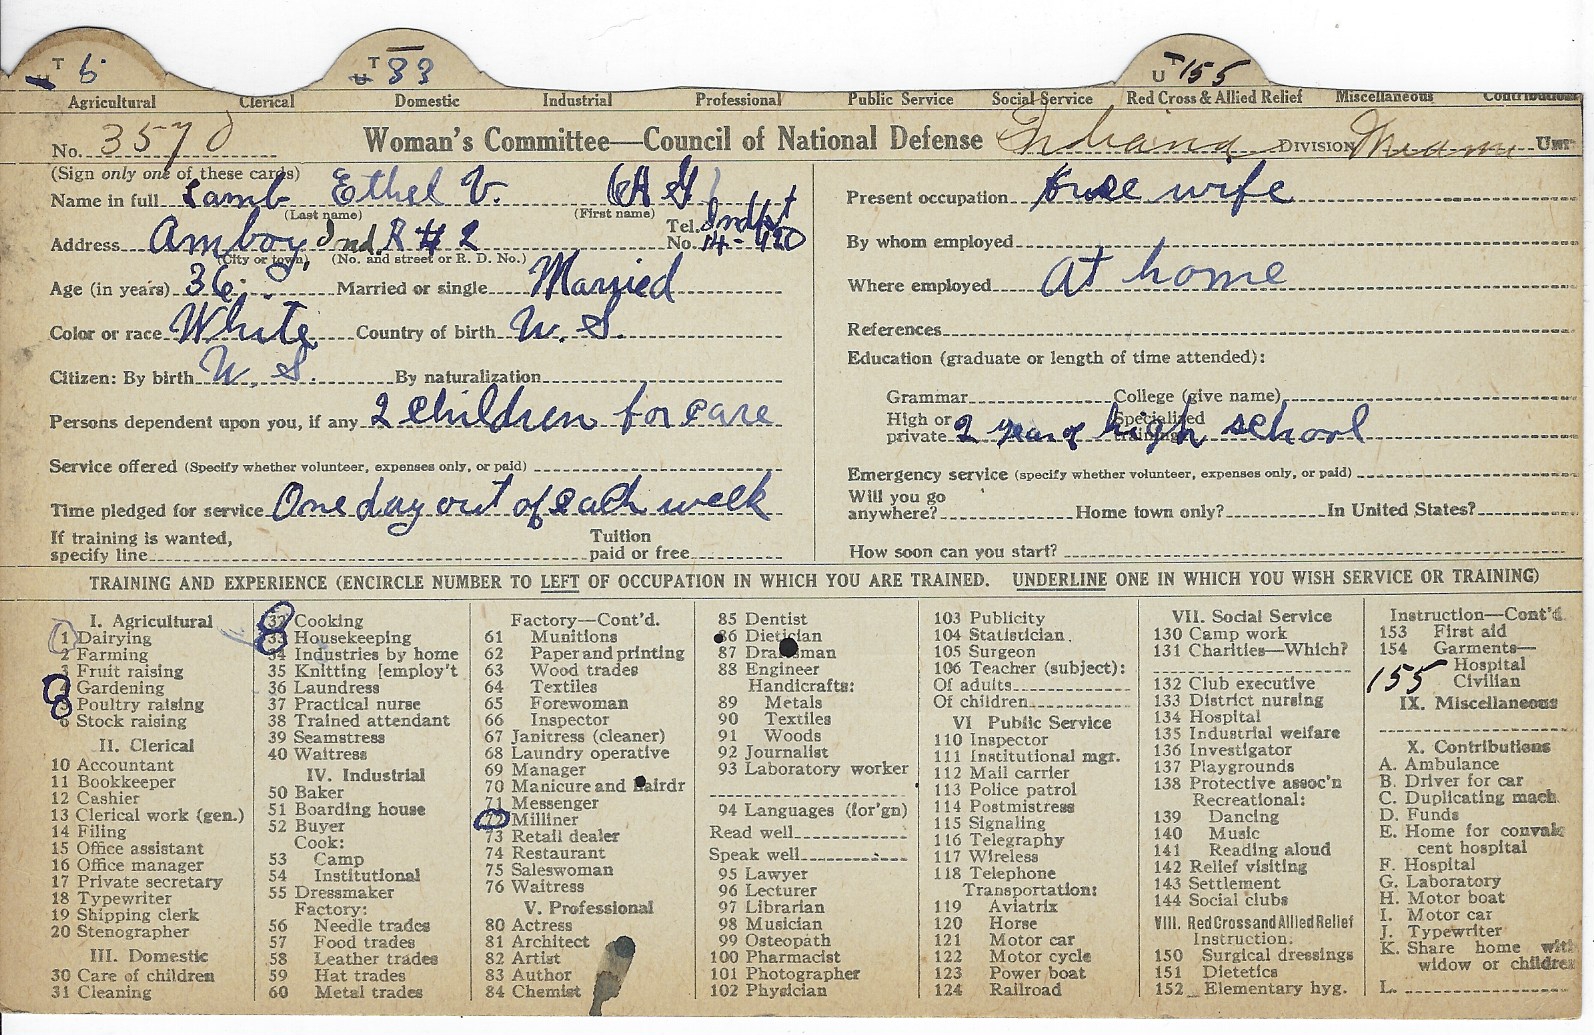 T 6 T 33 U T 155
Agricultural Clerical Domestic Industrial Professional Public Service Social Service Red Cross & Allied Relief Miscellaneous Contributions
No. 3570 Woman's Committee—Council of National Defense Indiana DIVISION Miami UNIT
(Sign only one of these cards)
Name in full Lamb Ethel V.
(Last name) (First name)
Address Amboy, Ind. R # 2 Tel. No. 14-420
(City or town) (No. and street or R. D. No.)
Age (in years) 36 Married or single Married
Color or race White Country of birth U. S.
Citizen: By birth U. S. By naturalization
Persons dependent upon you, if any 2 children for care
Service offered (Specify whether volunteer, expenses only, or paid)
Time pledged for service One day out of each week
If training is wanted, specify line Tuition paid or free
Present occupation House wife
By whom employed
Where employed At home
References
Education (graduate or length of time attended):
Grammar College (give name)
High or private 2 years of high school Specialized training
Emergency service (specify whether volunteer, expenses only, or paid)
Will you go anywhere? Home town only? In United States?
How soon can you start?
TRAINING AND EXPERIENCE (ENCIRCLE NUMBER TO LEFT OF OCCUPATION IN WHICH YOU ARE TRAINED. UNDERLINE ONE IN WHICH YOU WISH SERVICE OR TRAINING)
I. Agricultural
1 Dairying
2 Farming
3 Fruit raising
4 Gardening
5 Poultry raising
6 Stock raising
II. Clerical
10 Accountant
11 Bookkeeper
12 Cashier
13 Clerical work (gen.)
14 Filing
15 Office assistant
16 Office manager
17 Private secretary
18 Typewriter
19 Shipping clerk
20 Stenographer
III. Domestic
30 Care of children
31 Cleaning
32 Cooking
33 Housekeeping
34 Industries by home
35 Knitting [employ't
36 Laundress
37 Practical nurse
38 Trained attendant
39 Seamstress
40 Waitress
IV. Industrial
50 Baker
51 Boarding house
52 Buyer
Cook:
53 Camp
54 Institutional
55 Dressmaker
Factory:
56 Needle trades
57 Food trades
58 Leather trades
59 Hat trades
60 Metal trades
Factory—Cont'd.
61 Munitions
62 Paper and printing
63 Wood trades
64 Textiles
65 Forewoman
66 Inspector
67 Janitress (cleaner)
68 Laundry operative
69 Manager
70 Manicure and Hairdr
71 Messenger
72 Milliner
73 Retail dealer
74 Restaurant
75 Saleswoman
76 Waitress
V. Professional
80 Actress
81 Architect
82 Artist
83 Author
84 Chemist
85 Dentist
86 Dietician
87 Draftsman
88 Engineer
Handicrafts:
89 Metals
90 Textiles
91 Woods
92 Journalist
93 Laboratory worker
94 Languages (for'gn)
Read well
Speak well
95 Lawyer
96 Lecturer
97 Librarian
98 Musician
99 Osteopath
100 Pharmacist
101 Photographer
102 Physician
103 Publicity
104 Statistician
105 Surgeon
106 Teacher (subject):
Of adults
Of children
VI Public Service
110 Inspector
111 Institutional mgr.
112 Mail carrier
113 Police patrol
114 Postmistress
115 Signaling
116 Telegraphy
117 Wireless
118 Telephone
Transportation:
119 Aviatrix
120 Horse
121 Motor car
122 Motor cycle
123 Power boat
124 Railroad
VII. Social Service
130 Camp work
131 Charities—Which?
132 Club executive
133 District nursing
134 Hospital
135 Industrial welfare
136 Investigator
137 Playgrounds
138 Protective assoc'n
Recreational:
139 Dancing
140 Music
141 Reading aloud
142 Relief visiting
143 Settlement
144 Social clubs
VIII. Red Cross and Allied Relief
Instruction:
150 Surgical dressings
151 Dietetics
152 Elementary hyg.
Instruction—Cont'd.
153 First aid
154 Garments—
Hospital
155 Civilian
IX. Miscellaneous
X. Contributions
A. Ambulance
B. Driver for car
C. Duplicating mach.
D. Funds
E. Home for convales
cent hospital
F. Hospital
G. Laboratory
H. Motor boat
I. Motor car
J. Typewriter
K. Share home with
widow or children
L.